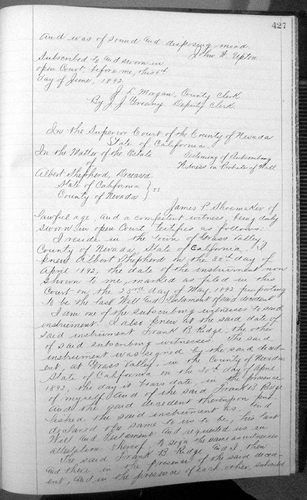 427
And was of sound and disposing mind.
John F. Upton
Subscribed to and sworn in
open Court, before me, this
day of June, 1892.
J. L. Morgan, County Clerk
By J. J. Greany Deputy Clerk
In the Superior Court of the County of Nevada
State of California.
In the Matter of the Estate
of
Albert Shepherd, Deceased
Testimony of Subscribing
Witness on Probate of Will
State of California } ss
County of Nevada
James P. Shoemaker of
lawful age, and a competent witness, being duly
sworn in open Court, testifies as follows:
I reside in the Town of Grass Valley
County of Nevada, State of California. I
knew Albert Shepherd on the 30th day of
April 1892, the date of the instrument now
shown to me, marked as filed in this
Court on the day of 1892 purporting
to be the last Will and Testament of said decedent
I am one of the subscribing witnesses to said
instrument. I also knew at the said date of
said instrument Frank B. Ridge, the other
of said subscribing witnesses. The said
instrument was signed by the said decedent
at Grass Valley, in the County of Nevada
State of California on the 30th day of April
1892, the day it bears date, in the presence
of myself and of the said Frank B. Ridge
And the said decedent thereupon published
the said instrument as, and
declared the same to us to be, his last
Will and Testament and requested us in
attestation thereof, to sign the same as witnesses
The said Frank B. Ridge and I, then
and there in the presence of the said decedent,
and in the presence of each other, subscribed